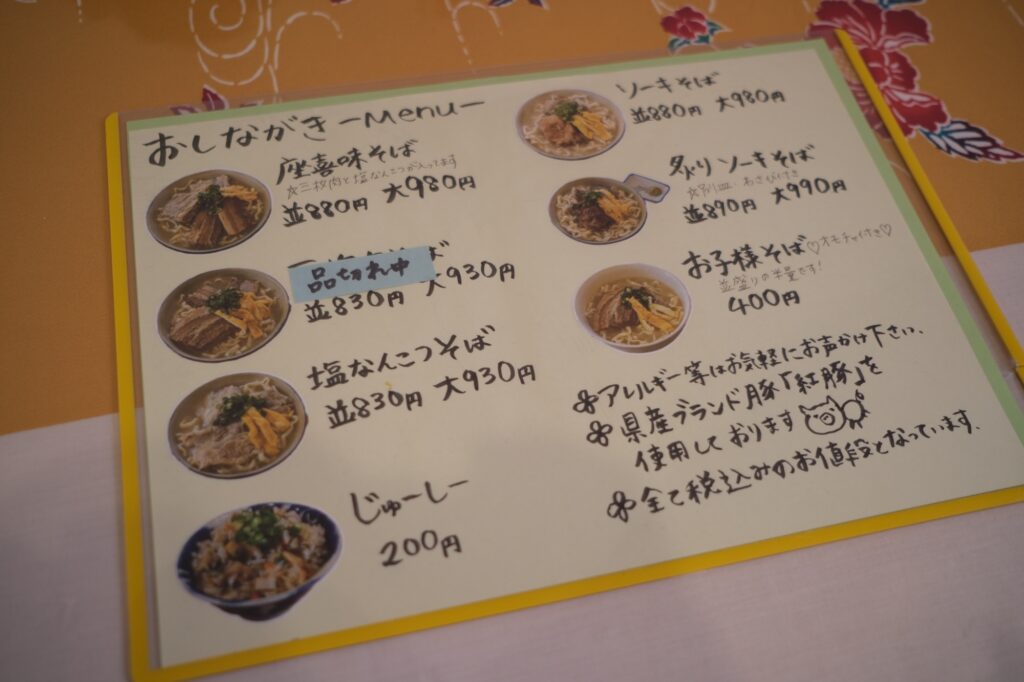 おしながき -Menu-
座喜味そば
☆三枚肉と塩なんこつが入ってます
並880円 大980円
品切れ中
並830円 大930円
塩なんこつそば
並830円 大930円
じゅーしー
200円
ソーキそば
並880円 大980円
炙りソーキそば
☆別皿・わさび付き
並890円 大990円
お子様そば ♡オモチャ付き♡
並盛りの半量です!
400円
アレルギー等はお気軽にお声かけ下さい、
県産ブランド豚「紅豚」を
使用しております
全て税込みのお値段となっています.